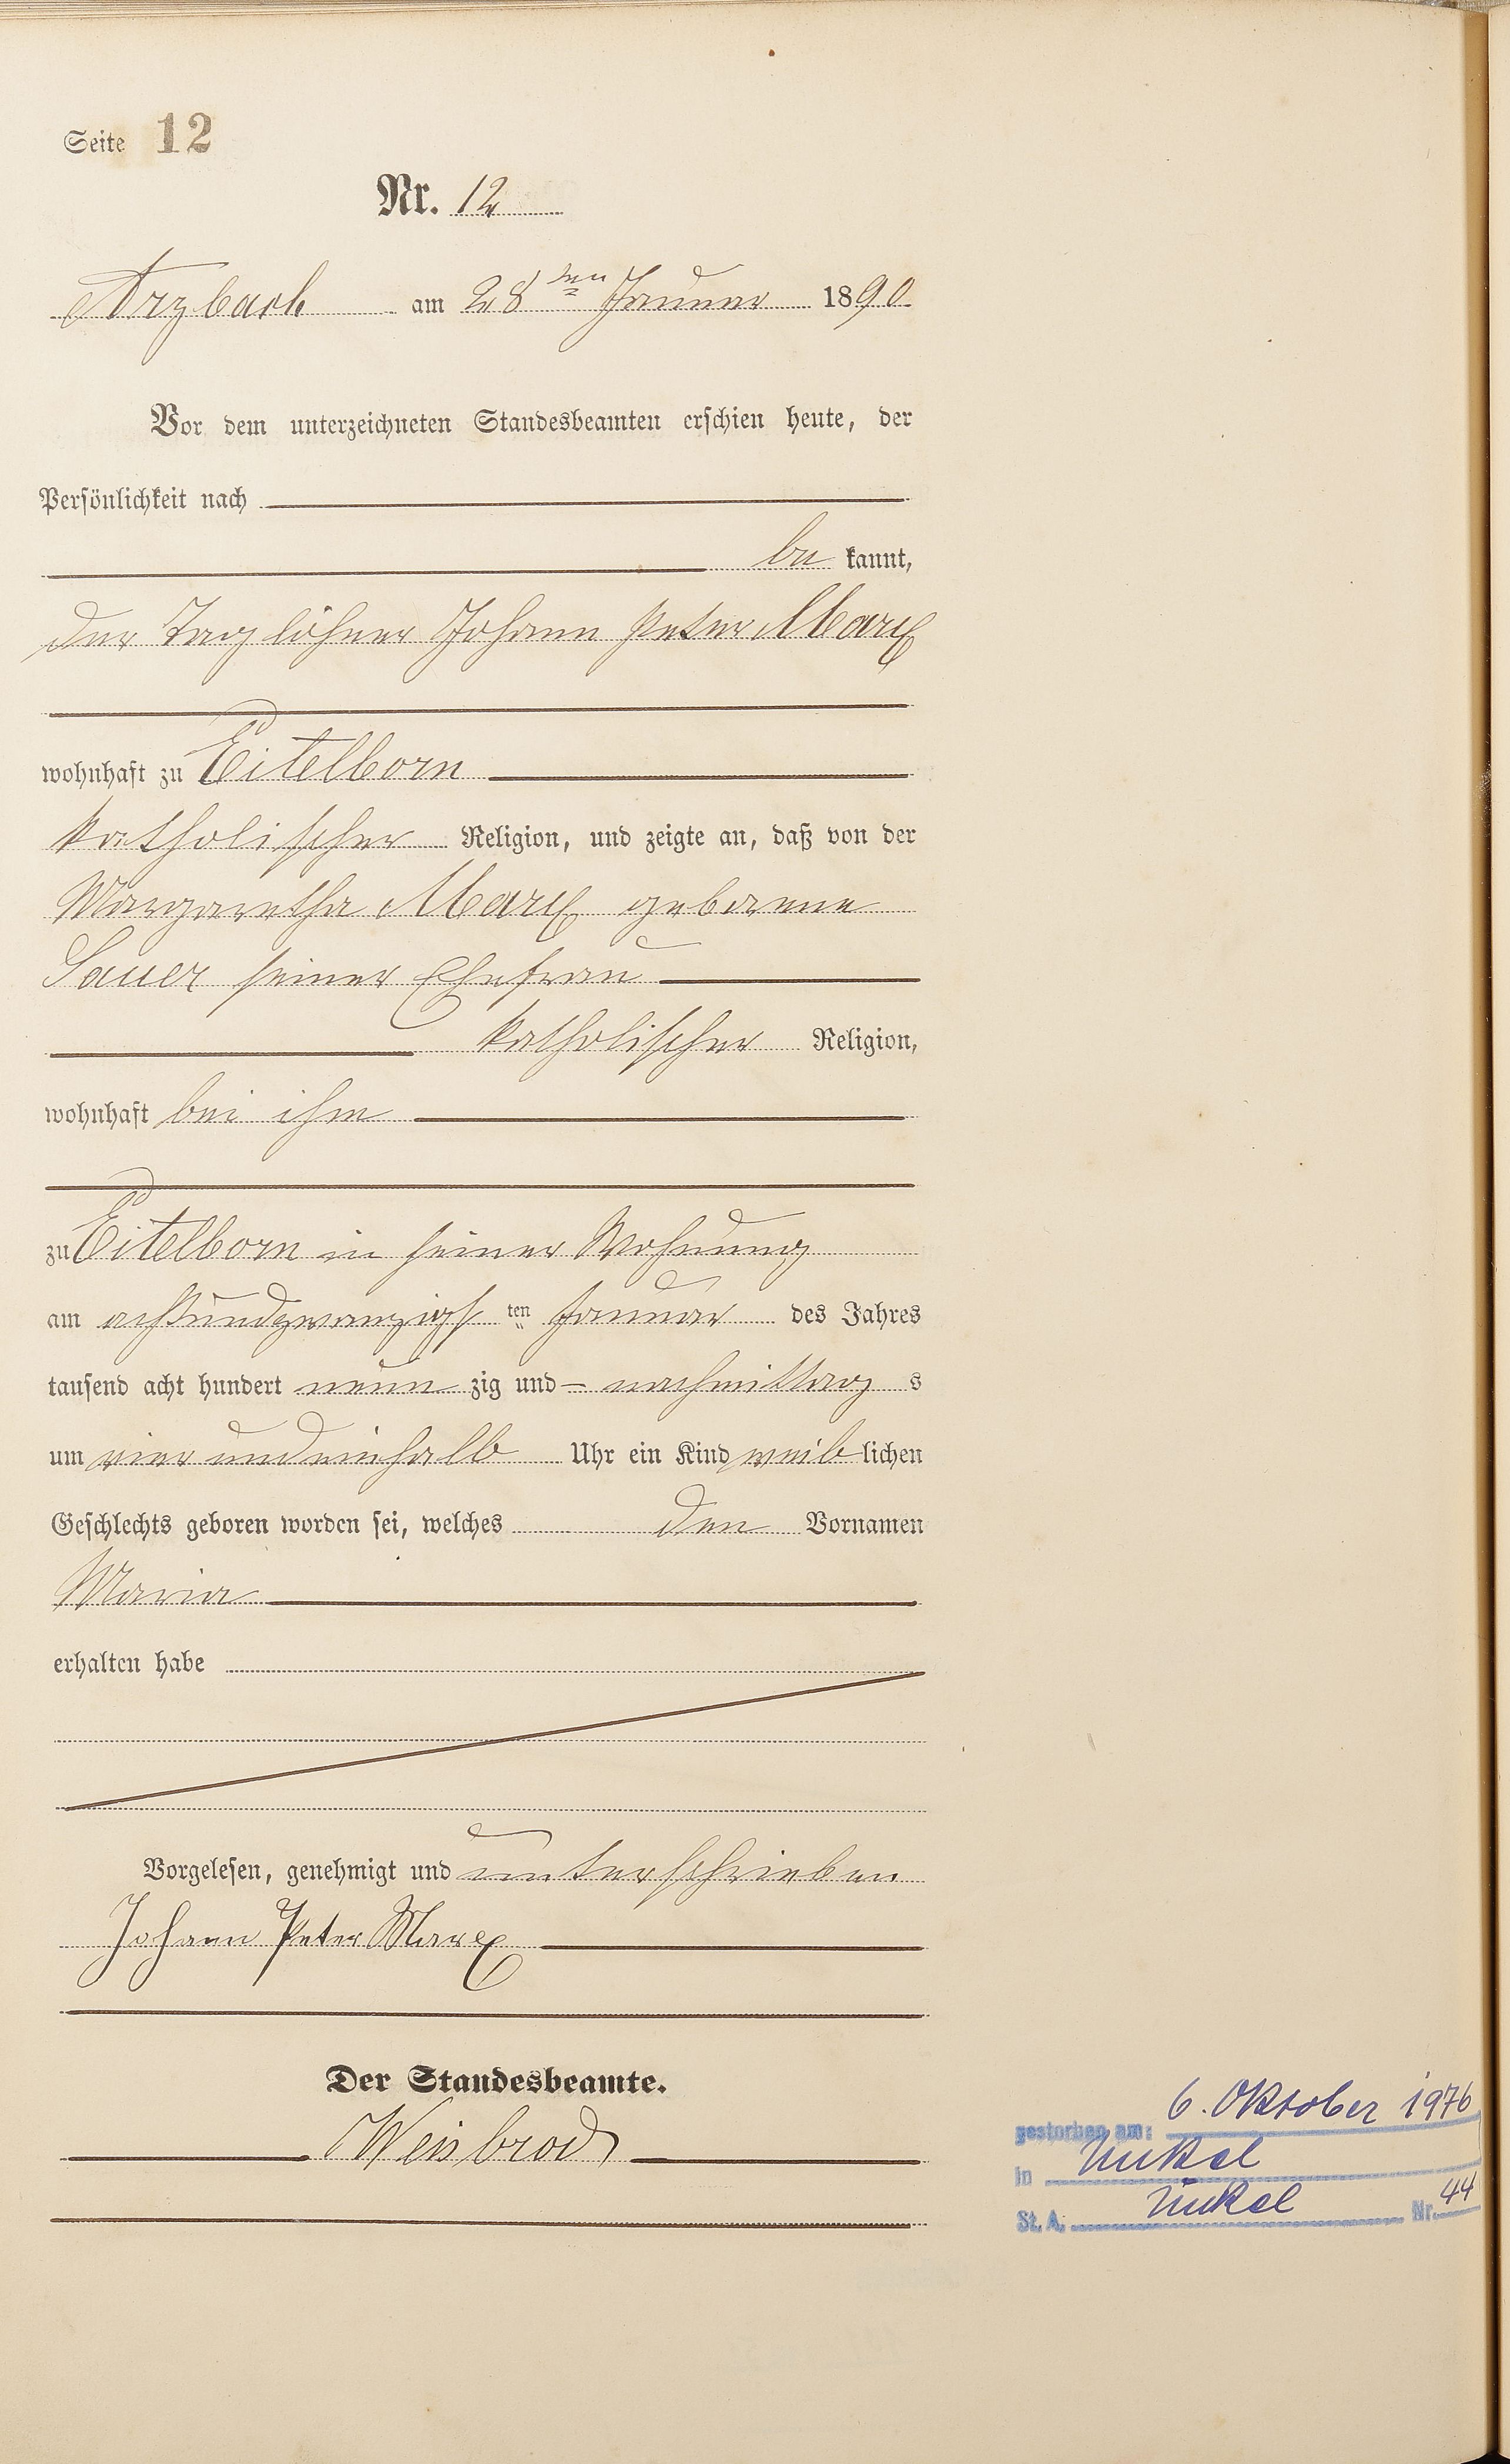 Seite 12
Nr. 12
Arzbach am 28ten Januar 1890
Vor dem unterzeichneten Standesbeamten erschien heute, der
Persönlichkeit nach
be kannt,
der Taglöhner Johann Peter Marx
wohnhaft zu Eitelborn
katholischer Religion, und zeigte an, daß von der
Margaretha Marx geborene
Sauer seiner Ehefrau
katholischer Religion,
wohnhaft bei ihm
zu Eitelborn in seiner Wohnung
am achtundzwanzigst ten Januar des Jahres
tausend acht hundert neun zig und – nachmittag s
um vier undeinhalb Uhr ein Kind weib lichen
Geschlechts geboren worden sei, welches den Vornamen
Maria
erhalten habe
Vorgelesen, genehmigt und unterschrieben
Johann Peter Marx
Der Standesbeamte.
Weisbrod
gestorben am: 6. Oktober 1976
in Unkel
St. A. Unkel Nr. 44